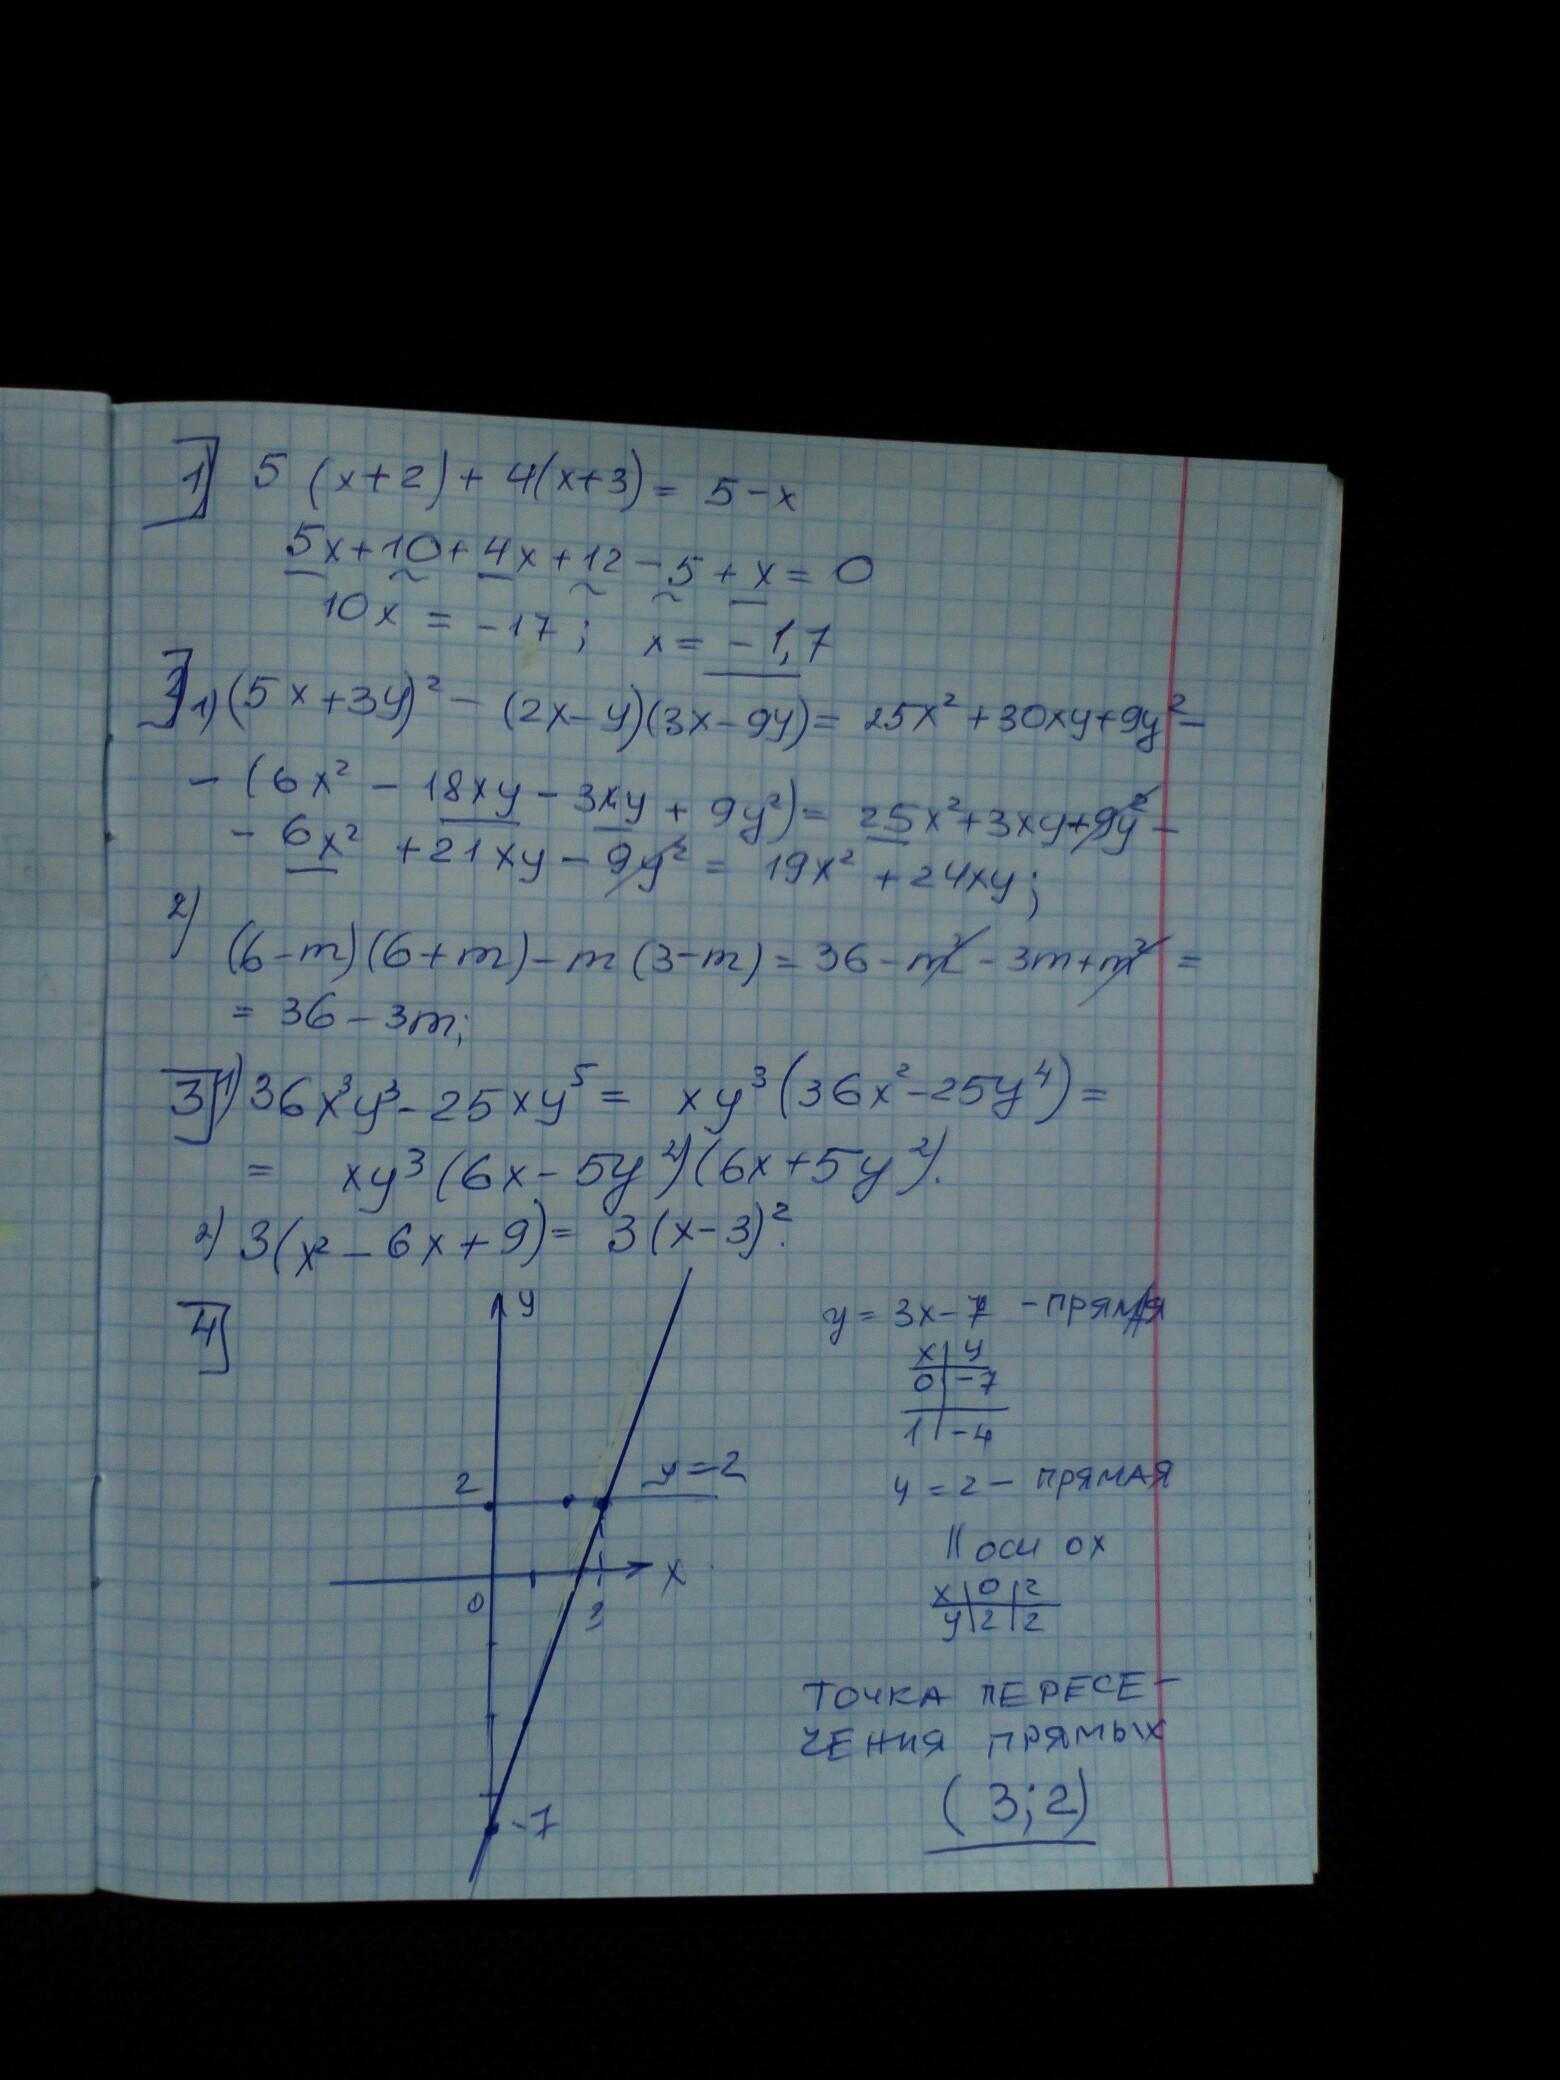 1) 5 (x+2) + 4(x+3) = 5-x
5x+10+4x+12-5+x=0
10x = -17; x= -1,7
2 1) (5x+3y)² - (2x-y)(3x-9y)= 25x²+30xy+9y²-
- (6x² - 18xy - 3xy + 9y²)= 25x²+3xy+9y²-
- 6x² +21xy - 9y² = 19x² +24xy;
2)
(6-m)(6+m)-m(3-m)=36-m²-3m+m² =
= 36-3m;
3 1) 36x³y³-25xy⁵= xy³(36x²-25y⁴)=
= xy³(6x-5y²)(6x+5y²).
2) 3(x²-6x+9)= 3(x-3)².
4
y
y= 3x-7 -прямая
x y
0 -7
1 -4
2
y=2
y=2- прямая
|| оси ох
x
0
3
x 0 2
y 2 2
точка пересе-
чения прямых
(3;2)
-7